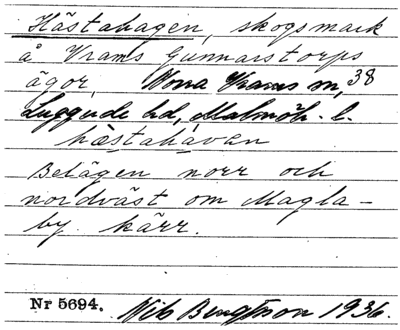 Hästahagen, skogsmark
å Vrams Gunnarstorps
ägor, Norra Vrams sn, 38
Luggude hd, Malmöh. l.
hästahåvan
Belägen norr och
nordväst om Magla-
by kärr.
Nr 5694. Nils Bengtsson 1936.